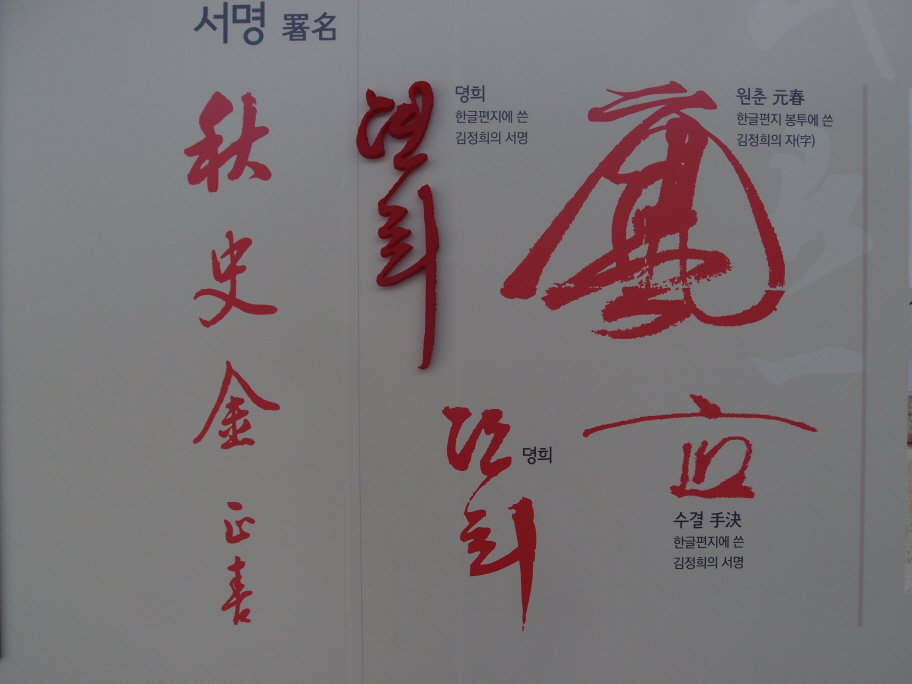 서명 署名
秋
史
金
正
喜
뎡희
한글편지에 쓴
김정희의 서명
원춘 元春
한글편지 봉투에 쓴
김정희의 자(字)
뎡희
수결 手決
한글편지에 쓴
김정희의 서명